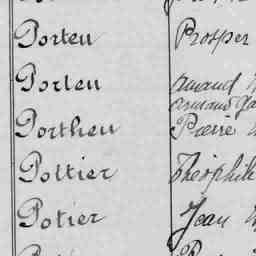 Porteu Prosper
Porteu Armand
Armand
Portheu Pierre
Pottier Théophile
Potier Jean